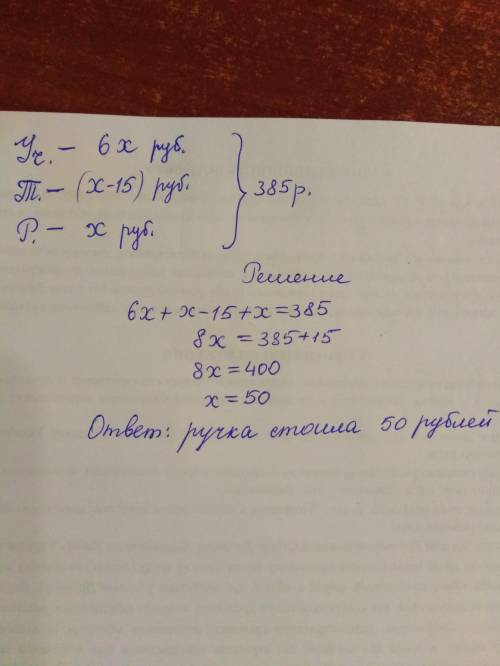 Уч. – 6x руб.
Т. – (x-15) руб.
Р. – x руб.
385р.
Решение
6x+x-15+x=385
8x=385+15
8x=400
x=50
Ответ: ручка стоила 50 рублей